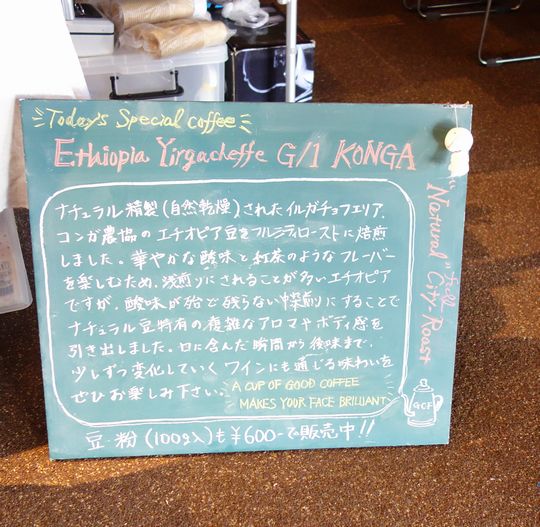 Today's Special coffee
Ethiopia Yirgacheffe G/1 KONGA
ナチュラル精製(自然乾燥)されたイルガチョフエリア、
コンガ農協のエチオピア豆をフルシティローストに焙煎
しました。華やかな酸味と紅茶のようなフレーバー
を楽しむため、浅煎りにされることが多いエチオピア
ですが、酸味が殆ど残らない深煎りにすることで
ナチュラル豆特有の複雑なアロマやボディ感を
引き出しました。口に含んだ瞬間から後味まで、
少しずつ変化していくワインにも通じる味わいを
ぜひお楽しみ下さい。
A CUP OF GOOD COFFEE
MAKES YOUR FACE BRILLIANT
GCF
豆・粉(100g入)も¥600-で販売中!!
"Natural" Full City Roast